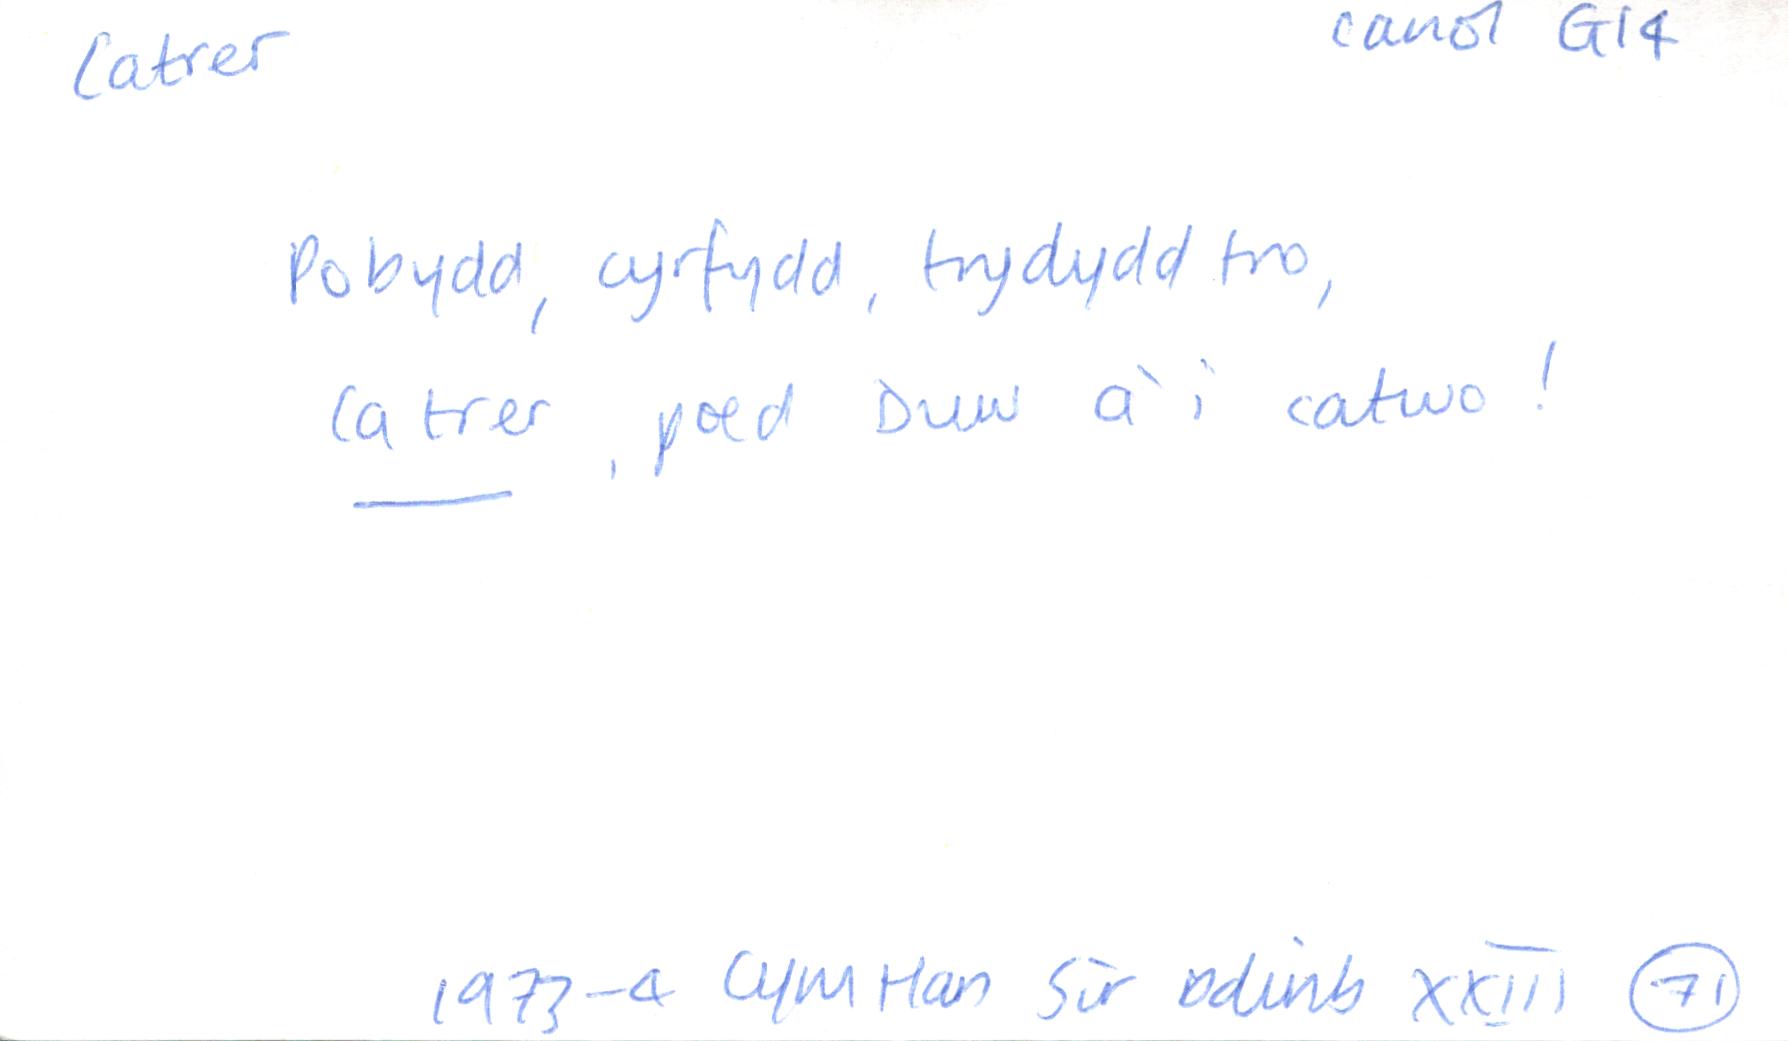 Catrer canol G14
Pobydd, cyrfydd, trydydd tro,
Catrer, poed Duw a'i catwo!
1973-4 Cym Han Sir Ddinb XXIII 71